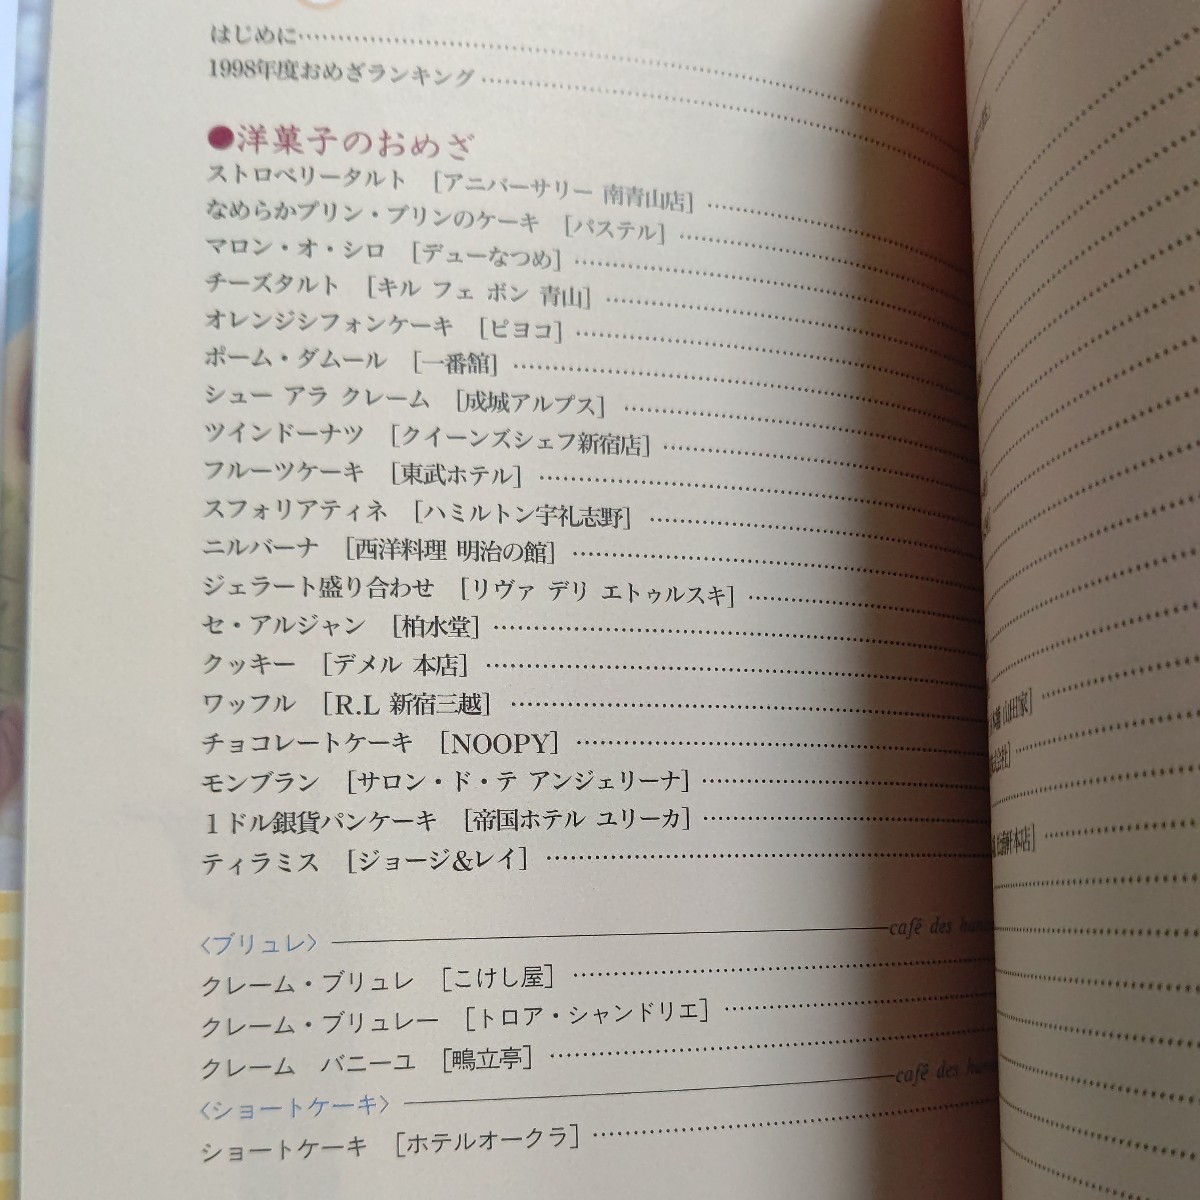 はじめに
1998年度おめざランキング
●洋菓子のおめざ
ストロベリータルト [アニバーサリー 南青山店]
なめらかプリン・プリンのケーキ [パステル]
マロン・オ・シロ [デューなつめ]
チーズタルト [キル フェ ボン 青山]
オレンジシフォンケーキ [ピヨコ]
ポーム・ダムール [一番舘]
シュー アラ クレーム [成城アルプス]
ツインドーナツ [クイーンズシェフ新宿店]
フルーツケーキ [東武ホテル]
スフォリアティネ [ハミルトン宇礼志野]
ニルバーナ [西洋料理 明治の館]
ジェラート盛り合わせ [リヴァ デリ エトゥルスキ]
セ・アルジャン [柏水堂]
クッキー [デメル 本店]
ワッフル [R.L 新宿三越]
チョコレートケーキ [NOOPY]
モンブラン [サロン・ド・テ アンジェリーナ]
1ドル銀貨パンケーキ [帝国ホテル ユリーカ]
ティラミス [ジョージ&レイ]
〈ブリュレ〉 café des
クレーム・ブリュレ [こけし屋]
クレーム・ブリュレー [トロア・シャンドリエ]
クレーム バニーユ [鴫立亭]
〈ショートケーキ〉 café des
ショートケーキ [ホテルオークラ]